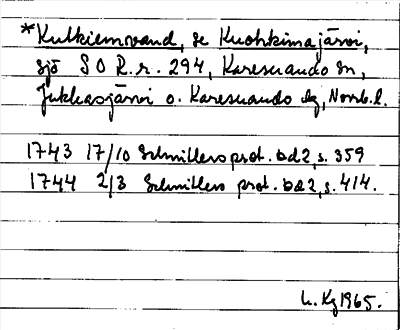 *Kulkiemvand, se Kuohkimajärvi,
sjö S O R.r. 294, Karesuando sn,
Jukkasjärvi o. Karesuando lg, Norrb.l.
1743 17/10 Schnitlers prot. bd 2, s. 359
1744 2/3 Schnitlers prot. bd 2, s. 414.
L. Kg 1965.